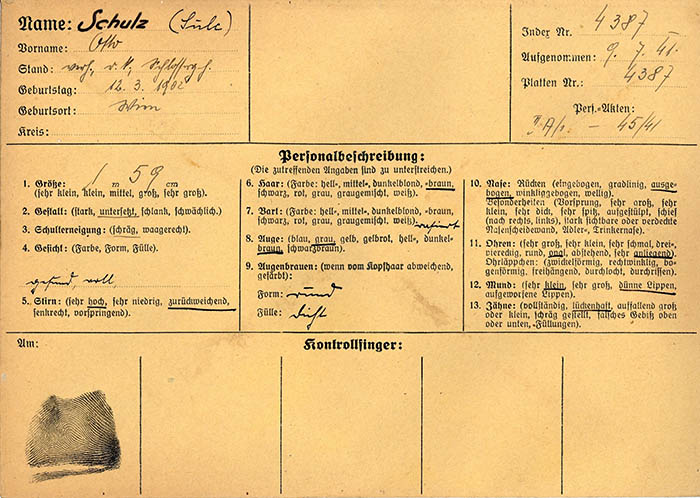 Name: Schulz (Sulc)
Vorname: Otto
Stand: verh., r. k., Schlosserg.h.
Geburtstag: 12. 3. 1902
Geburtsort: Wien
Kreis:
Index Nr. 4387
Aufgenommen: 9. 7. 41.
Platten Nr.: 4387
Pers.-Akten:
45/41
Personalbeschreibung:
(Die zutreffenden Angaben sind zu unterstreichen.)
1. Größe: 1 m 59 cm
(sehr klein, klein, mittel, groß, sehr groß).
2. Gestalt: (stark, untersetzt, schlank, schwächlich).
3. Schulterneigung: (schräg, waagerecht).
4. Gesicht: (Farbe, Form, Fülle).
gesund, voll,
5. Stirn: (sehr hoch, sehr niedrig, zurückweichend,
senkrecht, vorspringend).
6. Haar: (Farbe: hell-, mittel-, dunkelblond, -braun,
schwarz, rot, grau, graugemischt, weiß).
7. Bart: (Farbe: hell-, mittel-, dunkelblond, -braun,
schwarz, rot, grau, graugemischt, weiß) rasiert
8. Auge: (blau, grau, gelb, gelbrot, hell-, dunkel-
braun, schwarzbraun).
9. Augenbrauen: (wenn vom Kopfhaar abweichend,
gefärbt):
Form: rund
Fülle: dicht
10. Nase: Rücken (eingebogen, gradlinig, ausge-
bogen, winkliggebogen, wellig).
Besonderheiten (Vorsprung, sehr groß, sehr
klein, sehr dick, sehr spitz, aufgestülpt, schief
(nach rechts, links), stark sichtbare oder verdeckte
Nasenscheidewand, Adler-, Trinkernase).
11. Ohren: (sehr groß, sehr klein, sehr schmal, drei-,
viereckig, rund, oval, abstehend, sehr anliegend)
Ohrläppchen: (zwickelförmig, rechtwinklig, bo-
genförmig, freihängend, durchlocht, durchrissen).
12. Mund: (sehr klein, sehr groß, dünne Lippen,
aufgeworfene Lippen).
13. Zähne: (vollständig, lückenhaft, auffallend groß
oder klein, schräg gestellt, falsches Gebiß oben
oder unten, Füllungen).
Am:
Kontrollfinger: